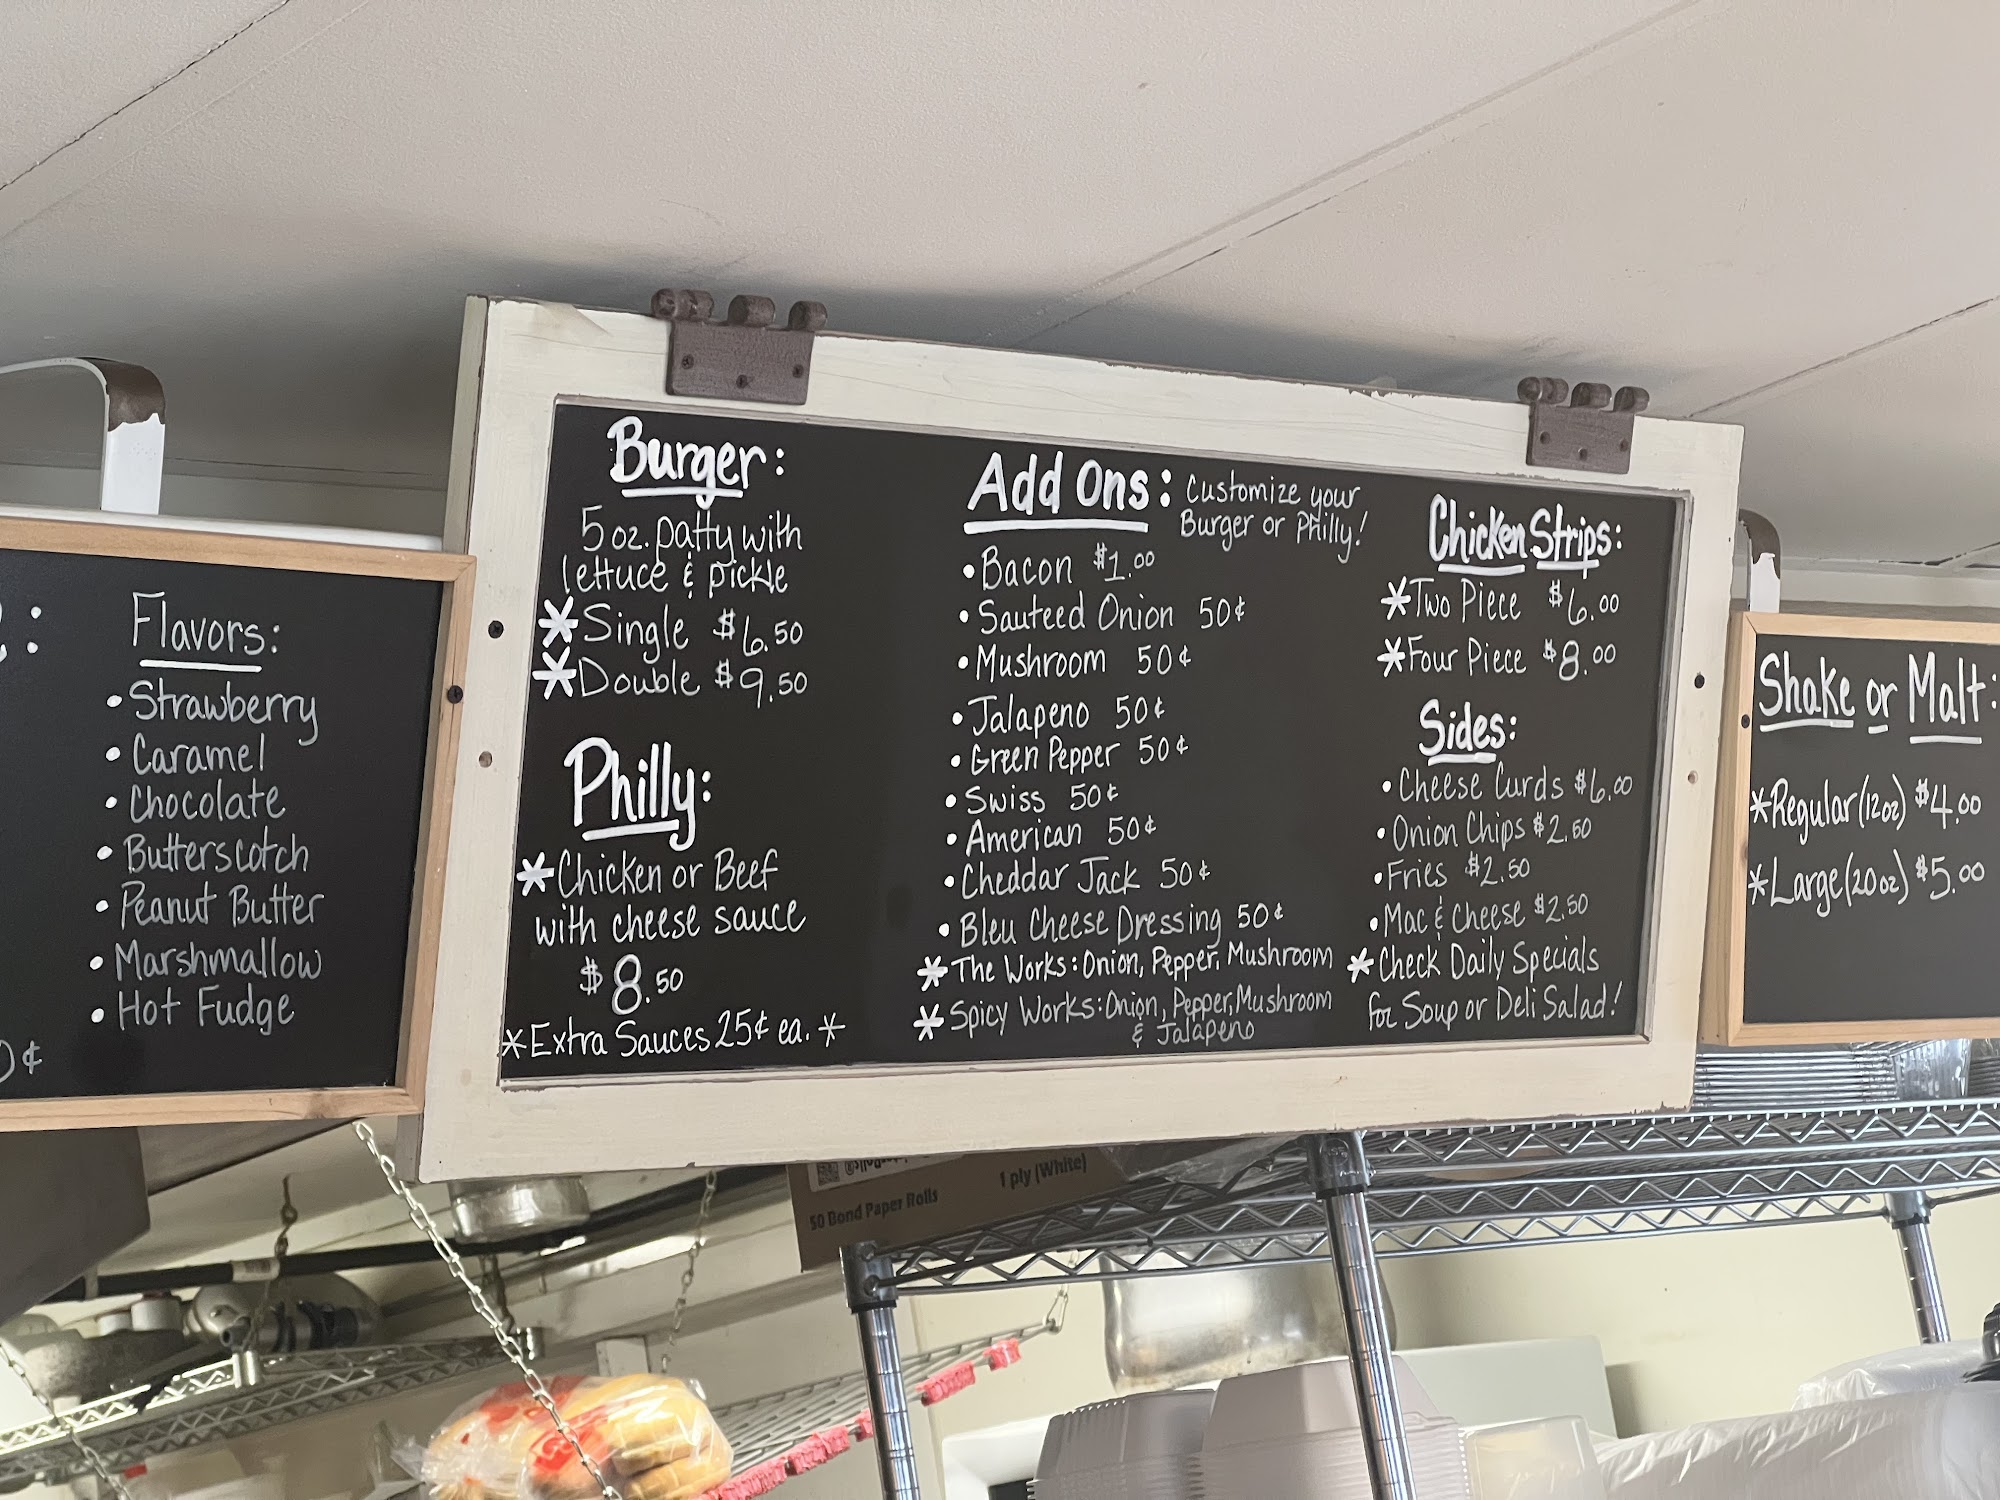 Flavors:
• Strawberry
• Caramel
• Chocolate
• Butterscotch
• Peanut Butter
• Marshmallow
• Hot Fudge
¢
Burger:
5 oz. patty with
lettuce & pickle
* Single $6.50
* Double $9.50
Philly:
* Chicken or Beef
with cheese sauce
$8.50
* Extra Sauces 25¢ ea. *
Add Ons: Customize your
Burger or Philly!
• Bacon $1.00
• Sauteed Onion 50¢
• Mushroom 50¢
• Jalapeno 50¢
• Green Pepper 50¢
• Swiss 50¢
• American 50¢
• Cheddar Jack 50¢
• Bleu Cheese Dressing 50¢
* The Works: Onion, Pepper, Mushroom
* Spicy Works: Onion, Pepper, Mushroom
& Jalapeno
Chicken Strips:
* Two Piece $6.00
* Four Piece $8.00
Sides:
• Cheese Curds $6.00
• Onion Chips $2.50
• Fries $2.50
• Mac & Cheese $2.50
* Check Daily Specials
for Soup or Deli Salad!
Shake or Malt:
* Regular (12oz) $4.00
* Large (20oz) $5.00
50 Bond Paper Rolls
1 ply (White)